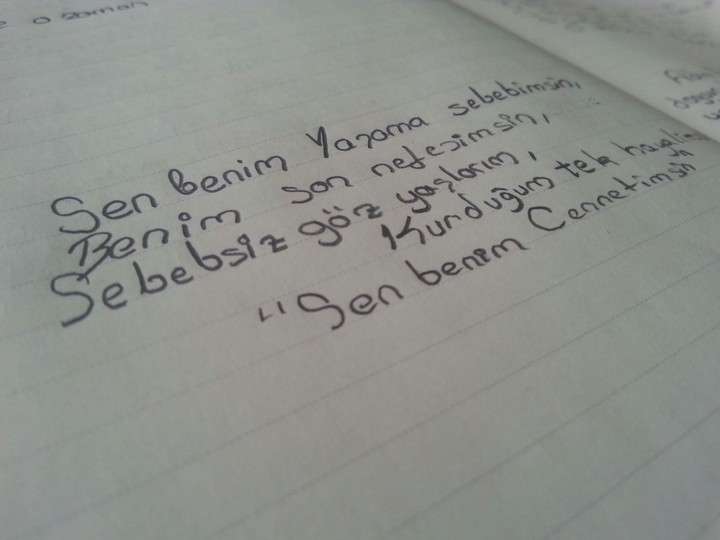 o zaman
Sen benim Yazama sebebimsin,
Benim son nefesimsin,
Sebebsiz göz yaşlarım,
Kurduğum tek
"Sen benim Cennetimsin